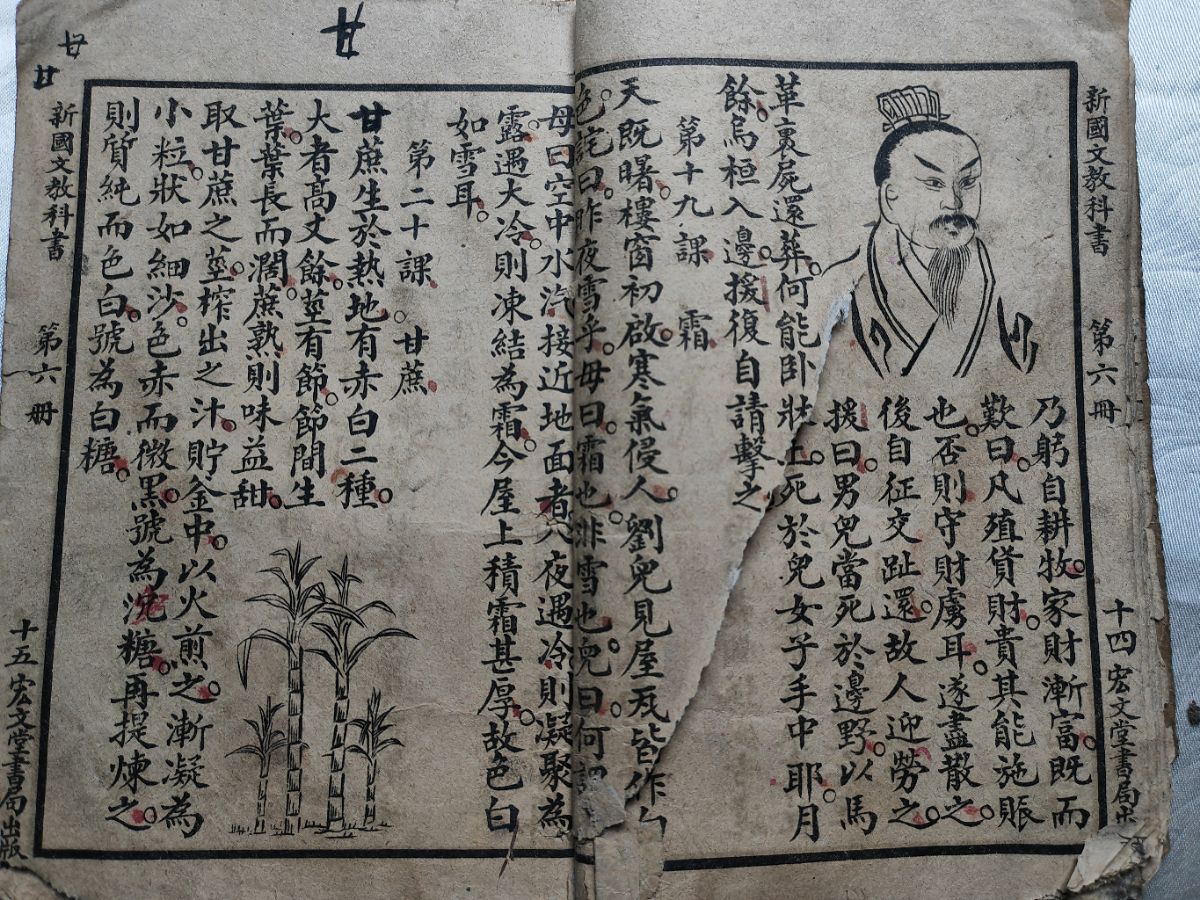 新國文教科書 第六冊 十四 宏文堂書局出
乃躬自耕牧。家財漸富。既而
歎曰。凡殖貨財。貴其能施賑
也。否則守財虜耳。遂盡散之。
後自征交趾還。故人迎勞之。
援曰。男兒當死於邊野。以馬
革裹屍還葬。何能卧牀上。死於兒女子手中耶。月
餘。烏桓入邊。援復自請擊之
第十九課 霜
天既曙。樓窗初啟。寒氣侵人。劉兒見屋瓦皆作白
色。詫曰。昨夜雪乎。母曰。霜也。非雪也。兒曰。何謂
母曰。空中水汽接近地面者。入夜遇冷。則凝聚為
露。遇大冷。則凍結為霜。今屋上積霜甚厚。故色白
如雪耳。
第二十課 甘蔗
甘蔗生於熱地。有赤白二種。
大者高丈餘。莖有節。節間生
葉。葉長而濶。蔗熟則味益甜。
取甘蔗之莖。榨出之汁。貯釜中。以火煎之。漸凝為
小粒。狀如細沙。色赤而微黑。號為沈糖。再提煉之。
則質純而色白。號為白糖。
新國文教科書 第六册 十五 宏文堂書局出版
甘
甘
甘